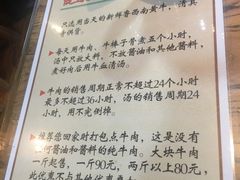 只选用当天的新鲜鲁西南黄牛，清真
每天用牛肉、牛棒子骨煮五个小时，
汤中只放大料，不放酱油和其他酱料，
煮好后用牛血清汤。
牛肉的销售周期正常不超过24个小时
最多不超过36小时，汤的销售周期24
小时，用不完倒掉。
推荐您回家时打包点牛肉，这是没有
何酱油和酱料的纯牛肉。大块牛肉
一斤起售，一斤90元，两斤以上80元，
此优惠不与其他优惠